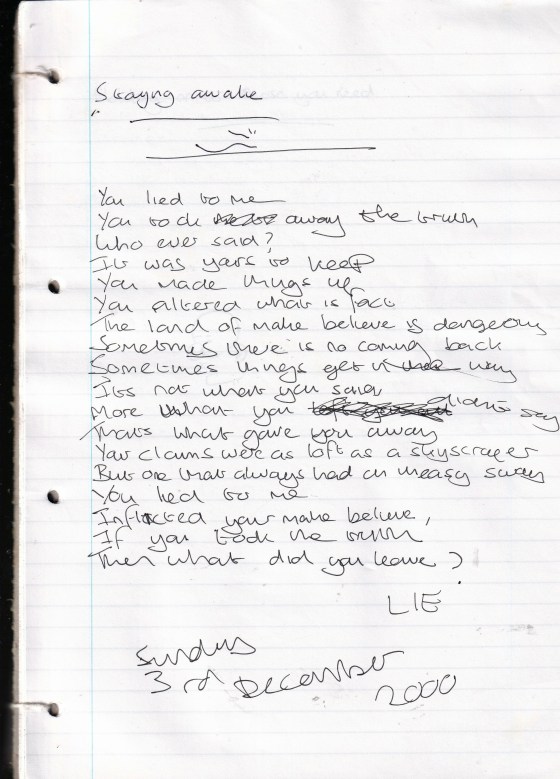 Staying awake
You lied to me
You took away the truth
Who ever said?
It was yours to keep
You made things up
You altered what is fact
The land of make believe is dangerous
Sometimes there is no coming back
Sometimes things get in the way
Its not what you say
More what you didn't say
Thats what gave you away
Your claims were as loft as a skyscraper
But one that always had an uneasy sway
You lied to me
Inflicted your make believe,
If you took the truth
Then what did you leave?
LIE
Sunday
3rd December
2000